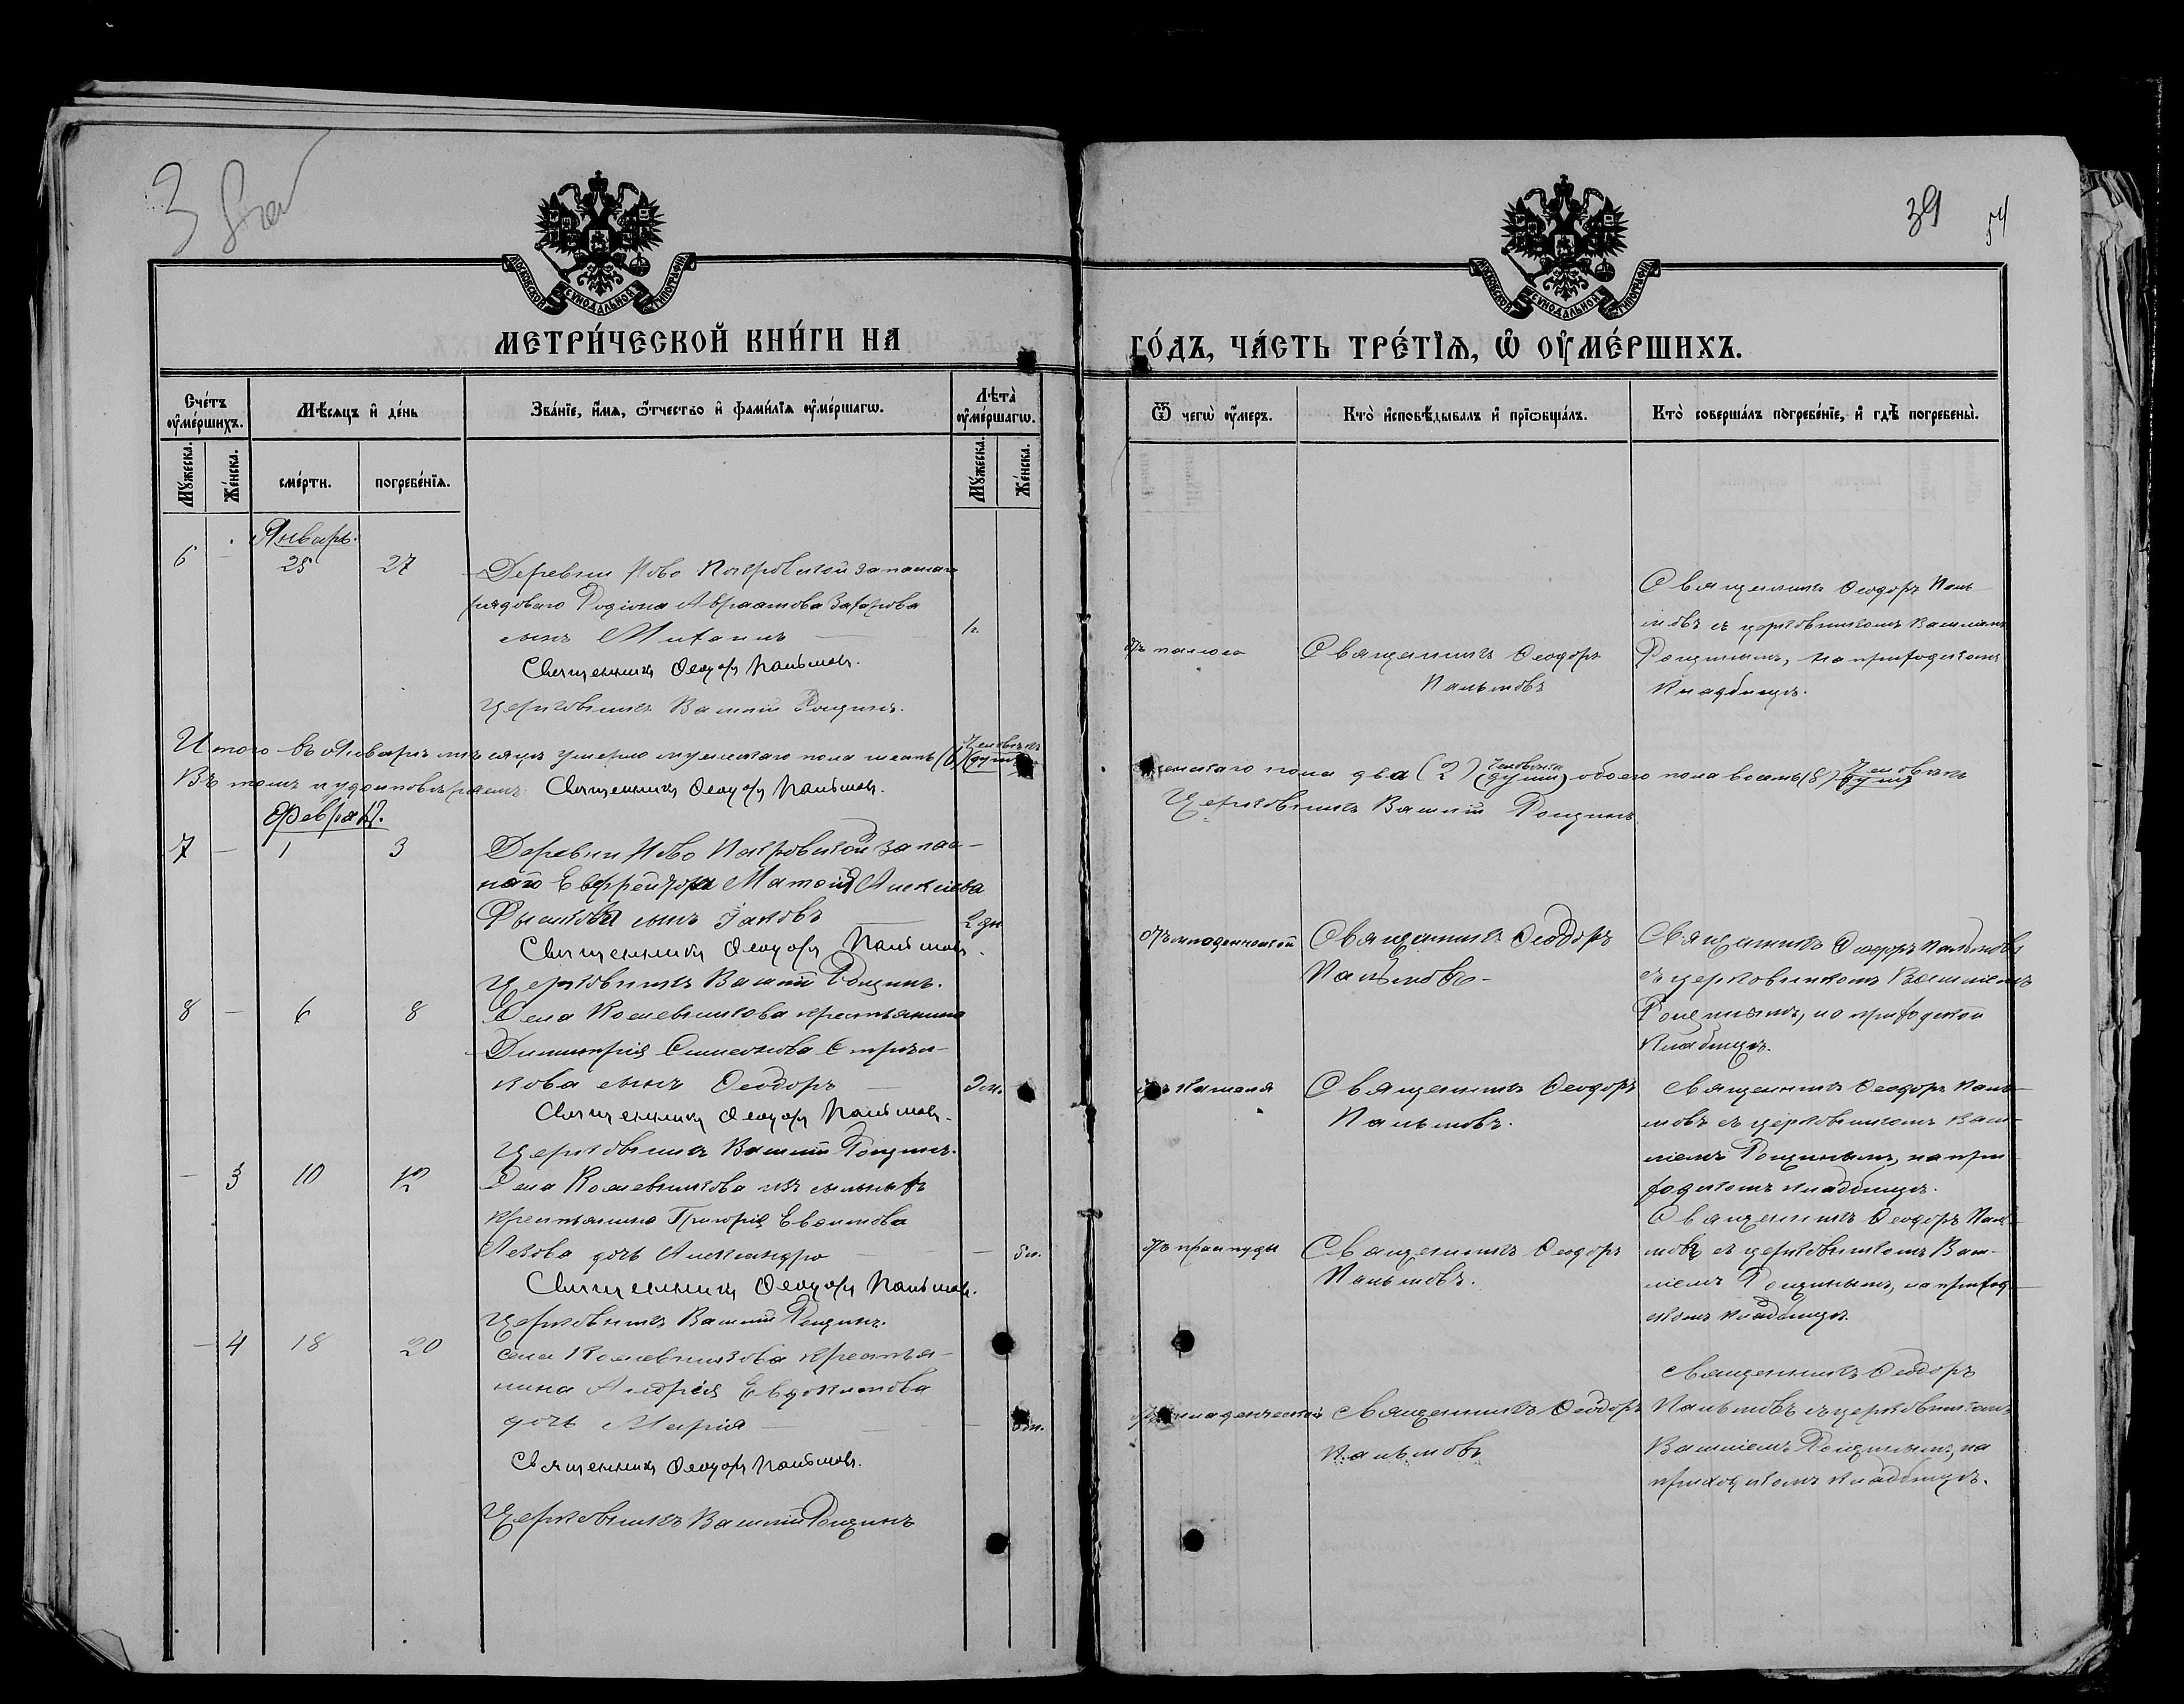 3
39
54
МОСКОВСКОЙ СѴНОДАЛЬНОЙ ТИПОГРАФІИ
МОСКОВСКОЙ СѴНОДАЛЬНОЙ ТИПОГРАФІИ
МЕТРИ́ЧЕСКОЙ КНИ́ГИ НА
ГО́ДЪ, ЧА́СТЬ ТРЕ́ТІѦ, Ѡ ОУМЕ́РШИХЪ.
Сче́тъ оумершихъ.
Мѣсѧцъ и де́нь
Зва́нїе, и́мѧ, ѻтчество и фами́лїѧ оуме́ршагѡ.
Лѣта̀ оуме́ршагѡ.
Ѿ чегѡ̀ оумеръ.
Кто̀ исповѣдывалъ и прїѡбща́лъ.
Кто̀ соверша́лъ погребе́нїе, и гдѣ погребены̀.
Му́жеска.
Же́нска.
сме́рти.
погребе́нїѧ.
Му́жеска.
Же́нска.
Январь.
6 - 25 27
Деревни Ново Покровской запаснаго
рядового Родіона Авраамова Захарова
сынъ Михаилъ
1 г.
Священникъ Ѳеодоръ Пальмовъ.
Церковникъ Василій Рощинъ.
Священникъ Ѳеодоръ
Пальмовъ
Священникъ Ѳеодоръ Паль-
мовъ съ церковникомъ Василіемъ
Рощинымъ, на приходскомъ
кладбищѣ.
Итого въ Январѣ мѣсяцѣ умерло мужескаго пола шесть (6) (душъ) человѣкъ
женскаго пола два (2) (души) человѣка обоего пола восемь (8) душъ человѣкъ
Въ томъ удостовѣряемъ: Священникъ Ѳеодоръ Пальмовъ.
Церковникъ Василій Рощинъ.
Февраль.
7 - 1 3
Деревни Ново Покровской запас-
наго Ефрейтора Матѳія Алексіева
сынъ Іаковъ
2 дн.
Священникъ Ѳеодоръ Пальмовъ.
Церковникъ Василій Рощинъ.
отъ младенческой
Священникъ Ѳеодоръ
Пальмовъ
Священникъ Ѳеодоръ Пальмовъ
съ церковникомъ Василіемъ
Рощинымъ, на приходской
кладбищѣ.
8 - 6 8
Села Кожевникова крестьянина
Димитрія Симеонова
сынъ Ѳеодоръ
2 м.
Священникъ Ѳеодоръ Пальмовъ.
Церковникъ Василій Рощинъ.
отъ кашля
Священникъ Ѳеодоръ
Пальмовъ.
Священникъ Ѳеодоръ Паль-
мовъ съ церковникомъ Васи-
ліемъ Рощинымъ, на при-
ходскомъ кладбищѣ.
- 3 10 12
Села Кожевникова изъ ссыльныхъ
крестьянина Григорія
дочь Александра
5 м.
Священникъ Ѳеодоръ Пальмовъ.
Церковникъ Василій Рощинъ.
отъ простуды
Священникъ Ѳеодоръ
Пальмовъ.
Священникъ Ѳеодоръ Паль-
мовъ съ церковникомъ Васи-
ліемъ Рощинымъ, на приход-
скомъ кладбищѣ.
- 4 18 20
села Кожевникова крестья-
нина Андрея Евдокимова
дочь Марія
Священникъ Ѳеодоръ Пальмовъ.
Церковникъ Василій Рощинъ
отъ младенческой
Священникъ Ѳеодоръ
Пальмовъ
Священникъ Ѳеодоръ
Пальмовъ съ церковникомъ
Василіемъ Рощинымъ, на
приходскомъ кладбищѣ.